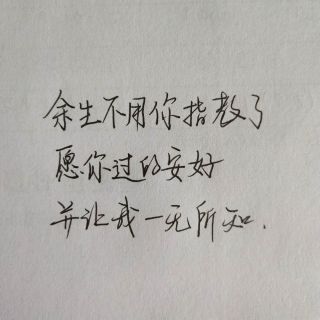 余生不用你指教了
愿你过的安好
并让我一无所知.